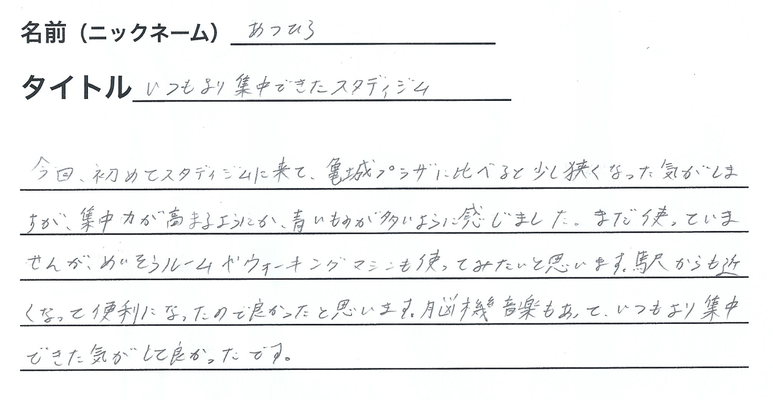 名前（ニックネーム） あつひろ
タイトル いつもより集中できたスタディジム
今回、初めてスタディジムに来て、亀城プラザに比べると少し狭くなった気がしま
すが、集中力が高まるようにか、青いものが多いように感じました。まだ使っていま
せんが、めいそうルームやウォーキングマシンも使ってみたいと思います。駅からも近
くなって便利になったので良かったと思います。脳機音楽もあって、いつもより集中
できた気がして良かったです。